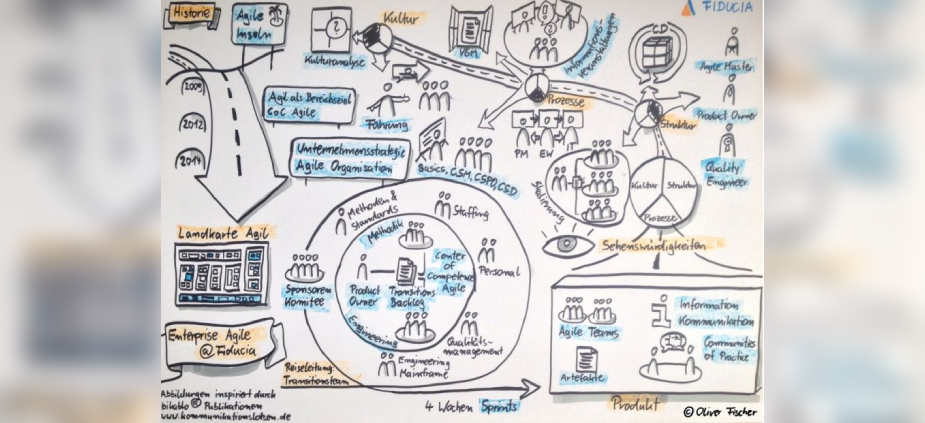 Historie
Agile
Inseln
Kultur
FIDUCIA
Kulturanalyse
VSM
Informations-
veranstaltungen
CD
Agile Master
2009
Agil als Bereichsziel
CoC Agile
Führung
Prozesse
Struktur
Product Owner
2012
PM EW IT
2014
Unternehmensstrategie
Agile Organisation
Basics, CSM, CSPO, CSD
Quality
Engineer
Skalierung
Kultur Struktur
Prozesse
Methoden &
Standards
Staffing
Landkarte Agil
Methodik
Sehenswürdigkeiten
Center
of
Competence
Agile
Personal
Sponsoren
Komitee
Product
Owner
Transitions
Backlog
Engineering
Qualitäts-
management
Engineering
Mainframe
Enterprise Agile
@ Fiducia
Reiseleitung:
Transitionsteam
4 Wochen Sprints
Agile Teams
Information
Kommunikation
Communities
of Practice
Artefakte
Produkt
Abbildungen inspiriert durch
bikablo® Publikationen
www.kommunikationslotsen.de
© Oliver Fischer